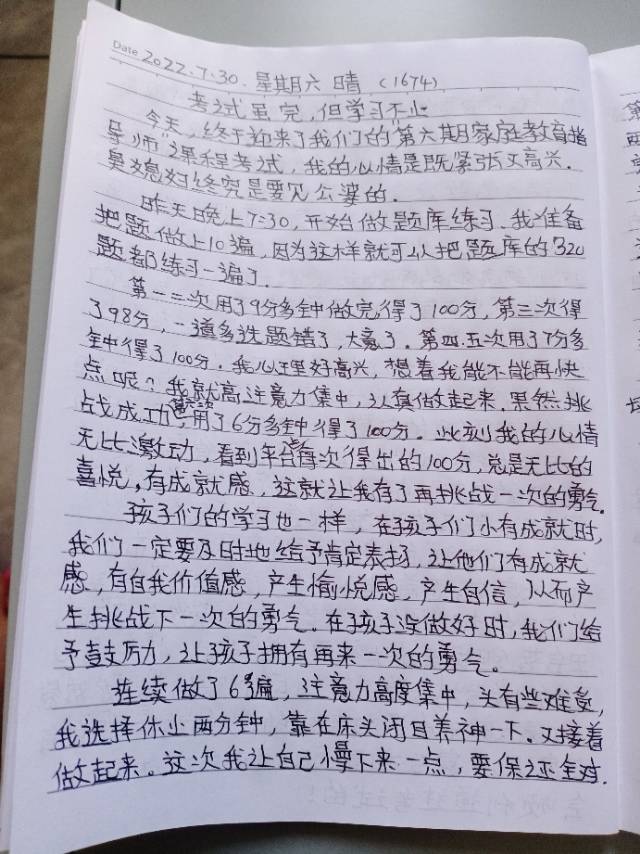 Date 2022.7.30. 星期六 晴 (1674)
考试虽完，但学习不止
今天，终于迎来了我们的"第六期家庭教育指
导师"课程考试，我的心情是既紧张又高兴.
臭媳妇终究是要见公婆的.
昨天晚上7:30，开始做题库练习.我准备
把题做上10遍，因为这样就可以把题库的320
题都练习一遍了.
第一二次用了9分多钟做完,得了100分，第三次得
了98分，一道多选题错了，大意了.第四.五次用了7分多
钟得了100分.我心理好高兴，想着我能不能再快
点呢？我就高注意力集中，认真做起来.果然挑
战成功,用了6分多钟得了100分.此刻我的心情
无比激动，看到平台每次得出的100分，总是无比的
喜悦，有成就感，这就让我有了再挑战一次的勇气.
孩子们的学习也一样，在孩子们小有成就时，
我们一定要及时地给予肯定表扬，让他们有成就
感，有自我价值感，产生愉悦感，产生自信，从而产
生挑战下一次的勇气.在孩子没做好时，我们给
予鼓厉力，让孩子拥有再来一次的勇气。
连续做了6遍，注意力高度集中，头有些难受，
我选择休止两分钟，靠在床头闭目养神一下.又接着
做起来。这次我让自己慢下来一点，要保证全对.